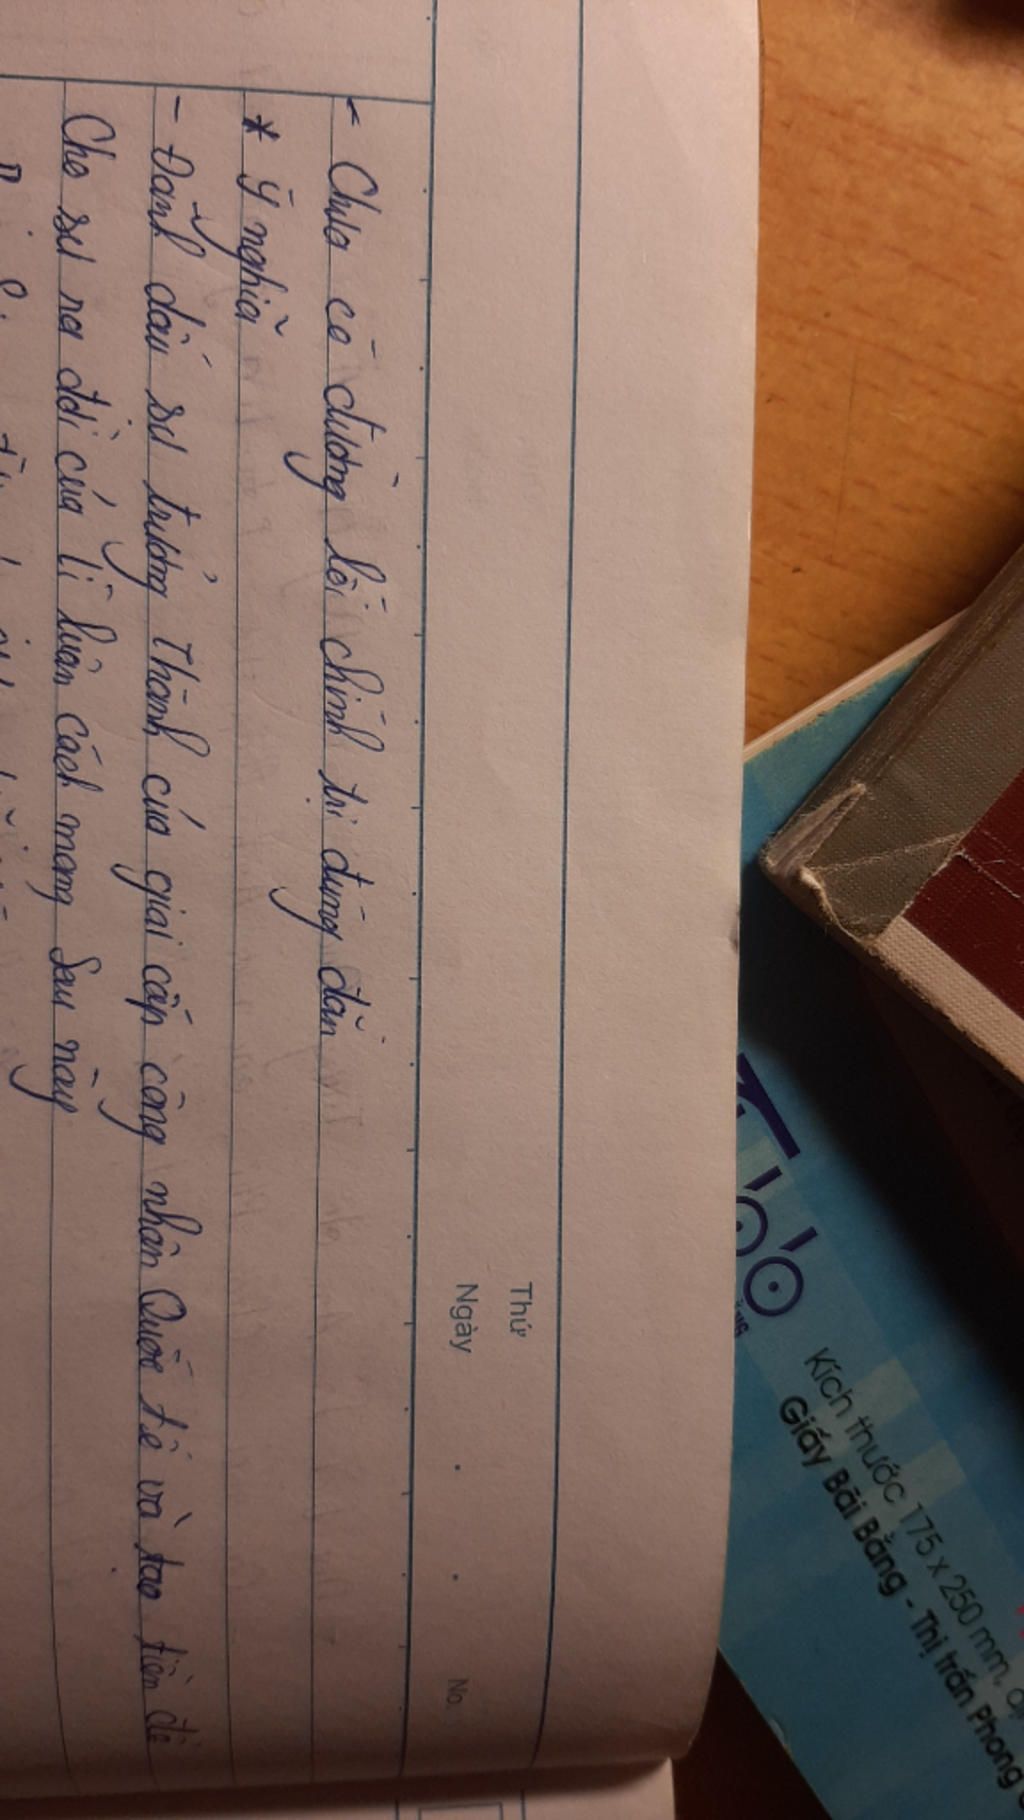 Thứ
Ngày
No.
- Chưa có đường lối chính trị đúng đắn
* Ý nghĩa
- Đánh dấu sự trưởng thành của giai cấp công nhân Quốc tế và tạo tiền đề
Cho sự ra đời của lí luận cách mạng sau này
Kích thước 175 x 250 mm,
Giấy Bãi Bằng - Thị trấn Phong